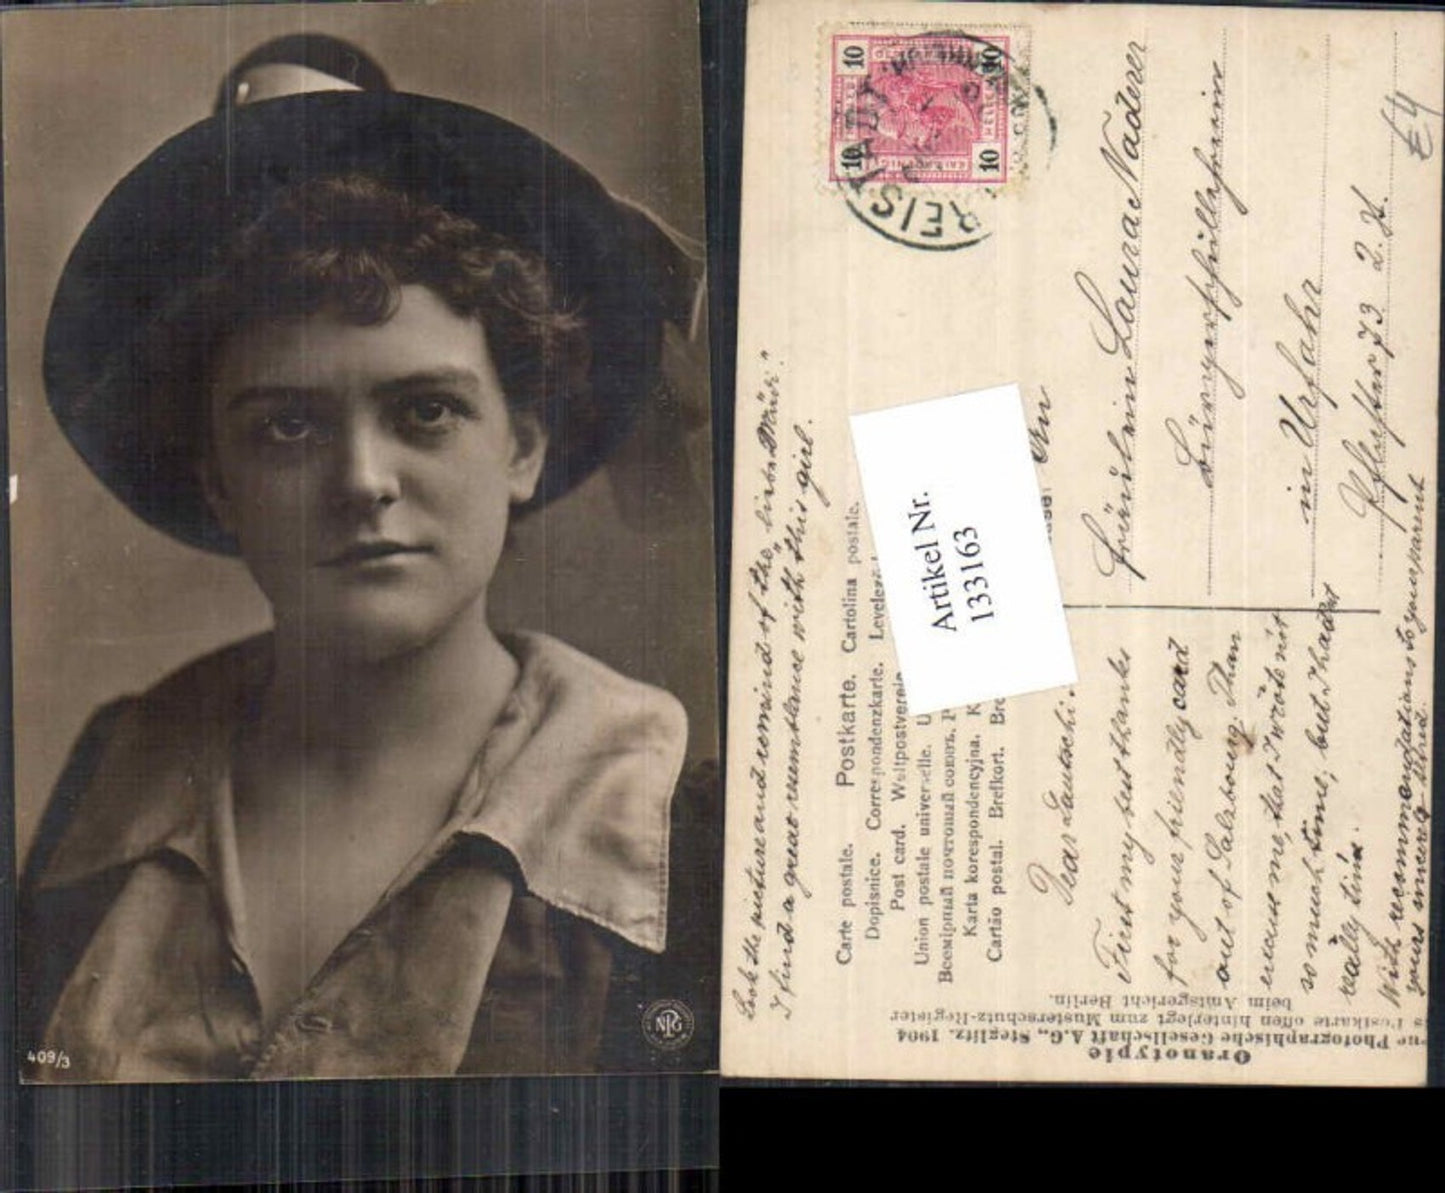 409/3
NPG
Look the picture and remind of the "lieben Mäur."
I find a great resemblance with this girl.
Carte postale. Postkarte. Cartolina postale.
Dopisnice. Correspondenzkarte.
Post card. Weltpostverein
Union postale universelle.
Всемірный почтовый союзъ.
Karta korespondencyjna.
Cartão postal. Brefkort.
Artikel Nr.
133163
10 10
10 10
REISTADT
An
Fräulein Laura Naderer
Bürgerschillehrerin
in Urfahr
73 2. St.
£4
Dear Lautschi.
First my best thanks
for your friendly card
out of Salzbourg. Than
excuse me, that I wrote not
so much time, but I hadnt
really time.
With recommandations to your parent
yours
Oranotypie
Neue Photographische Gesellschaft A.G., Steglitz. 1904
Postkarte offen hinterlegt zum Musterschutz-Register
beim Amtsgericht Berlin.